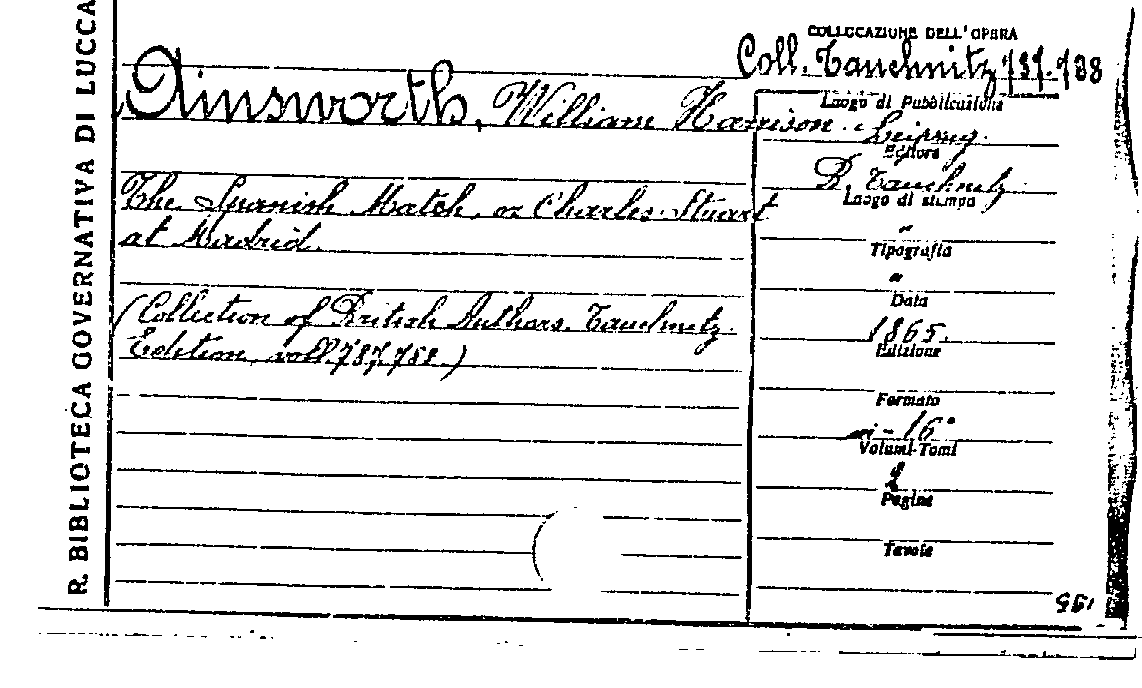 R. BIBLIOTECA GOVERNATIVA DI LUCCA
COLLOCAZIONE DELL'OPERA
Coll. Tauchnitz 787.788
Ainsworth, William Harrison.
The Spanish Match, or Charles Stuart
at Madrid.
(Collection of British Authors. Tauchnitz
Edition, voll. 787, 788.)
Luogo di Pubblicazione
Leipzig.
Editore
B. Tauchnitz
Luogo di stampa
"
Tipografia
"
Data
1865.
Edizione
Formato
in-16°
Volumi-Tomi
2
Pagine
Tavole